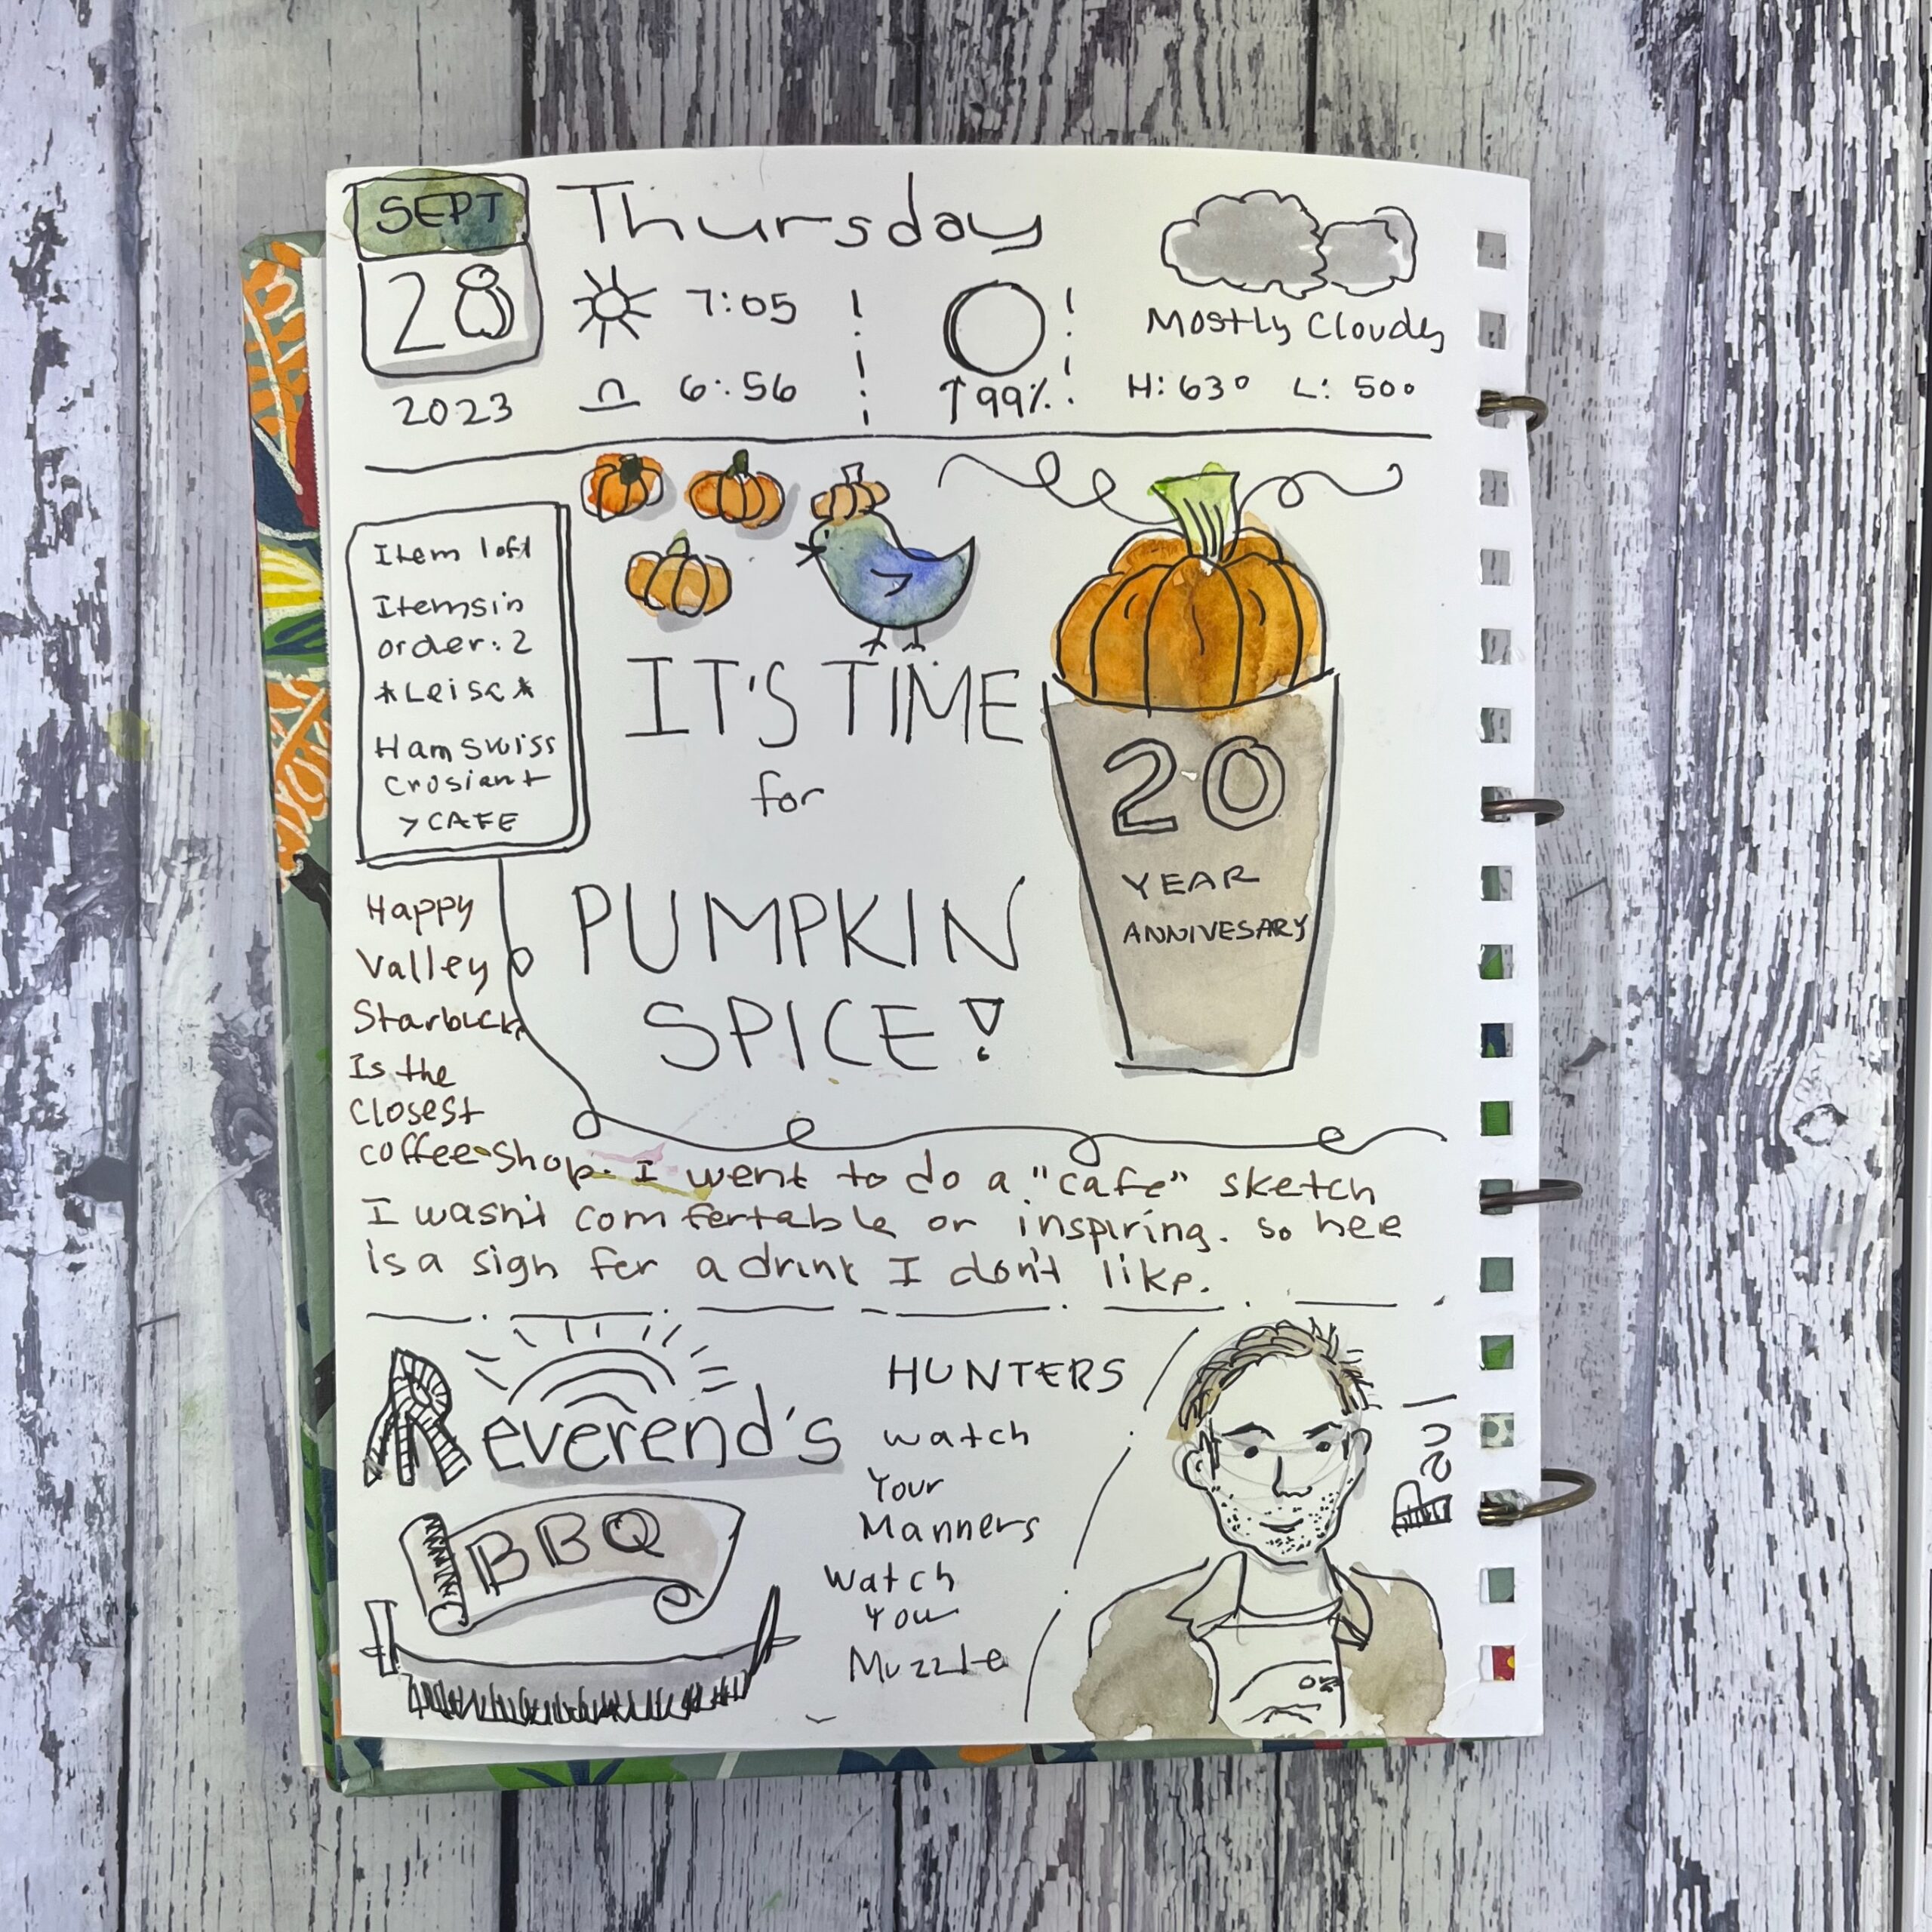 SEPT
28
2023
Thursday
7:05
6:56
↑99%
Mostly Cloudy
H: 63° L: 50°
Item 1 of 1
Items in
order: 2
*Leisa*
Ham Swiss
Crosiant
>CAFE
IT'S TIME
for
PUMPKIN
SPICE!
20
YEAR
ANNIVESARY
Happy
Valley
Starbuck
Is the
Closest
coffee-shop. I went to do a "cafe" sketch
I wasn't comfertable or inspiring. so hee
is a sign for a drink I don't like.
Reverend's
BBQ
HUNTERS
watch
Your
Manners
Watch
You
Muzzle
Paul